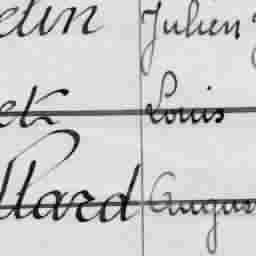 elin Julien
et Louis
llard Augus